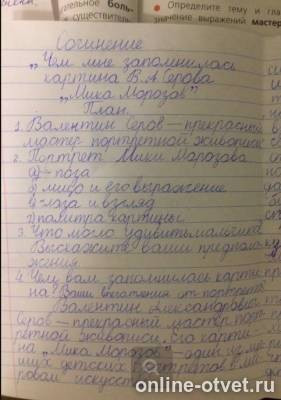 ательное боль-
существитель-
Определите тему и гла
значение выражений мастер
Сочинение
„Чем мне запомнилась
картина В.А Серова
„Мика Морозов"
План.
1. Валентин Серов – прекрасный
мастер портретной живописи
2. Портрет Мики Морозова
а) – поза
б) лицо и его выражение
в) глаза и взгляд
г) палитра картины.
3. Что могло удивить мальчика
Выскажите ваши предполо
жения.
4. Чем вам запомнилась карти
на? Ваши впечатления от портрета
Валентин Александрович
Серов – прекрасный мастер порт
ретной живописи. Его карти-
на „Мика Морозов" – один из лу
ших детских портретов в ми
ровом искусст
online-otvet.ru